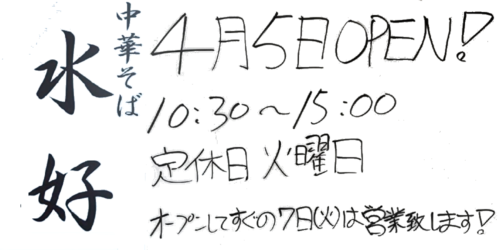 中華そば
水好
4月5日OPEN!
10:30～15:00
定休日 火曜日
オープンしてすぐの7日(火)は営業致します!